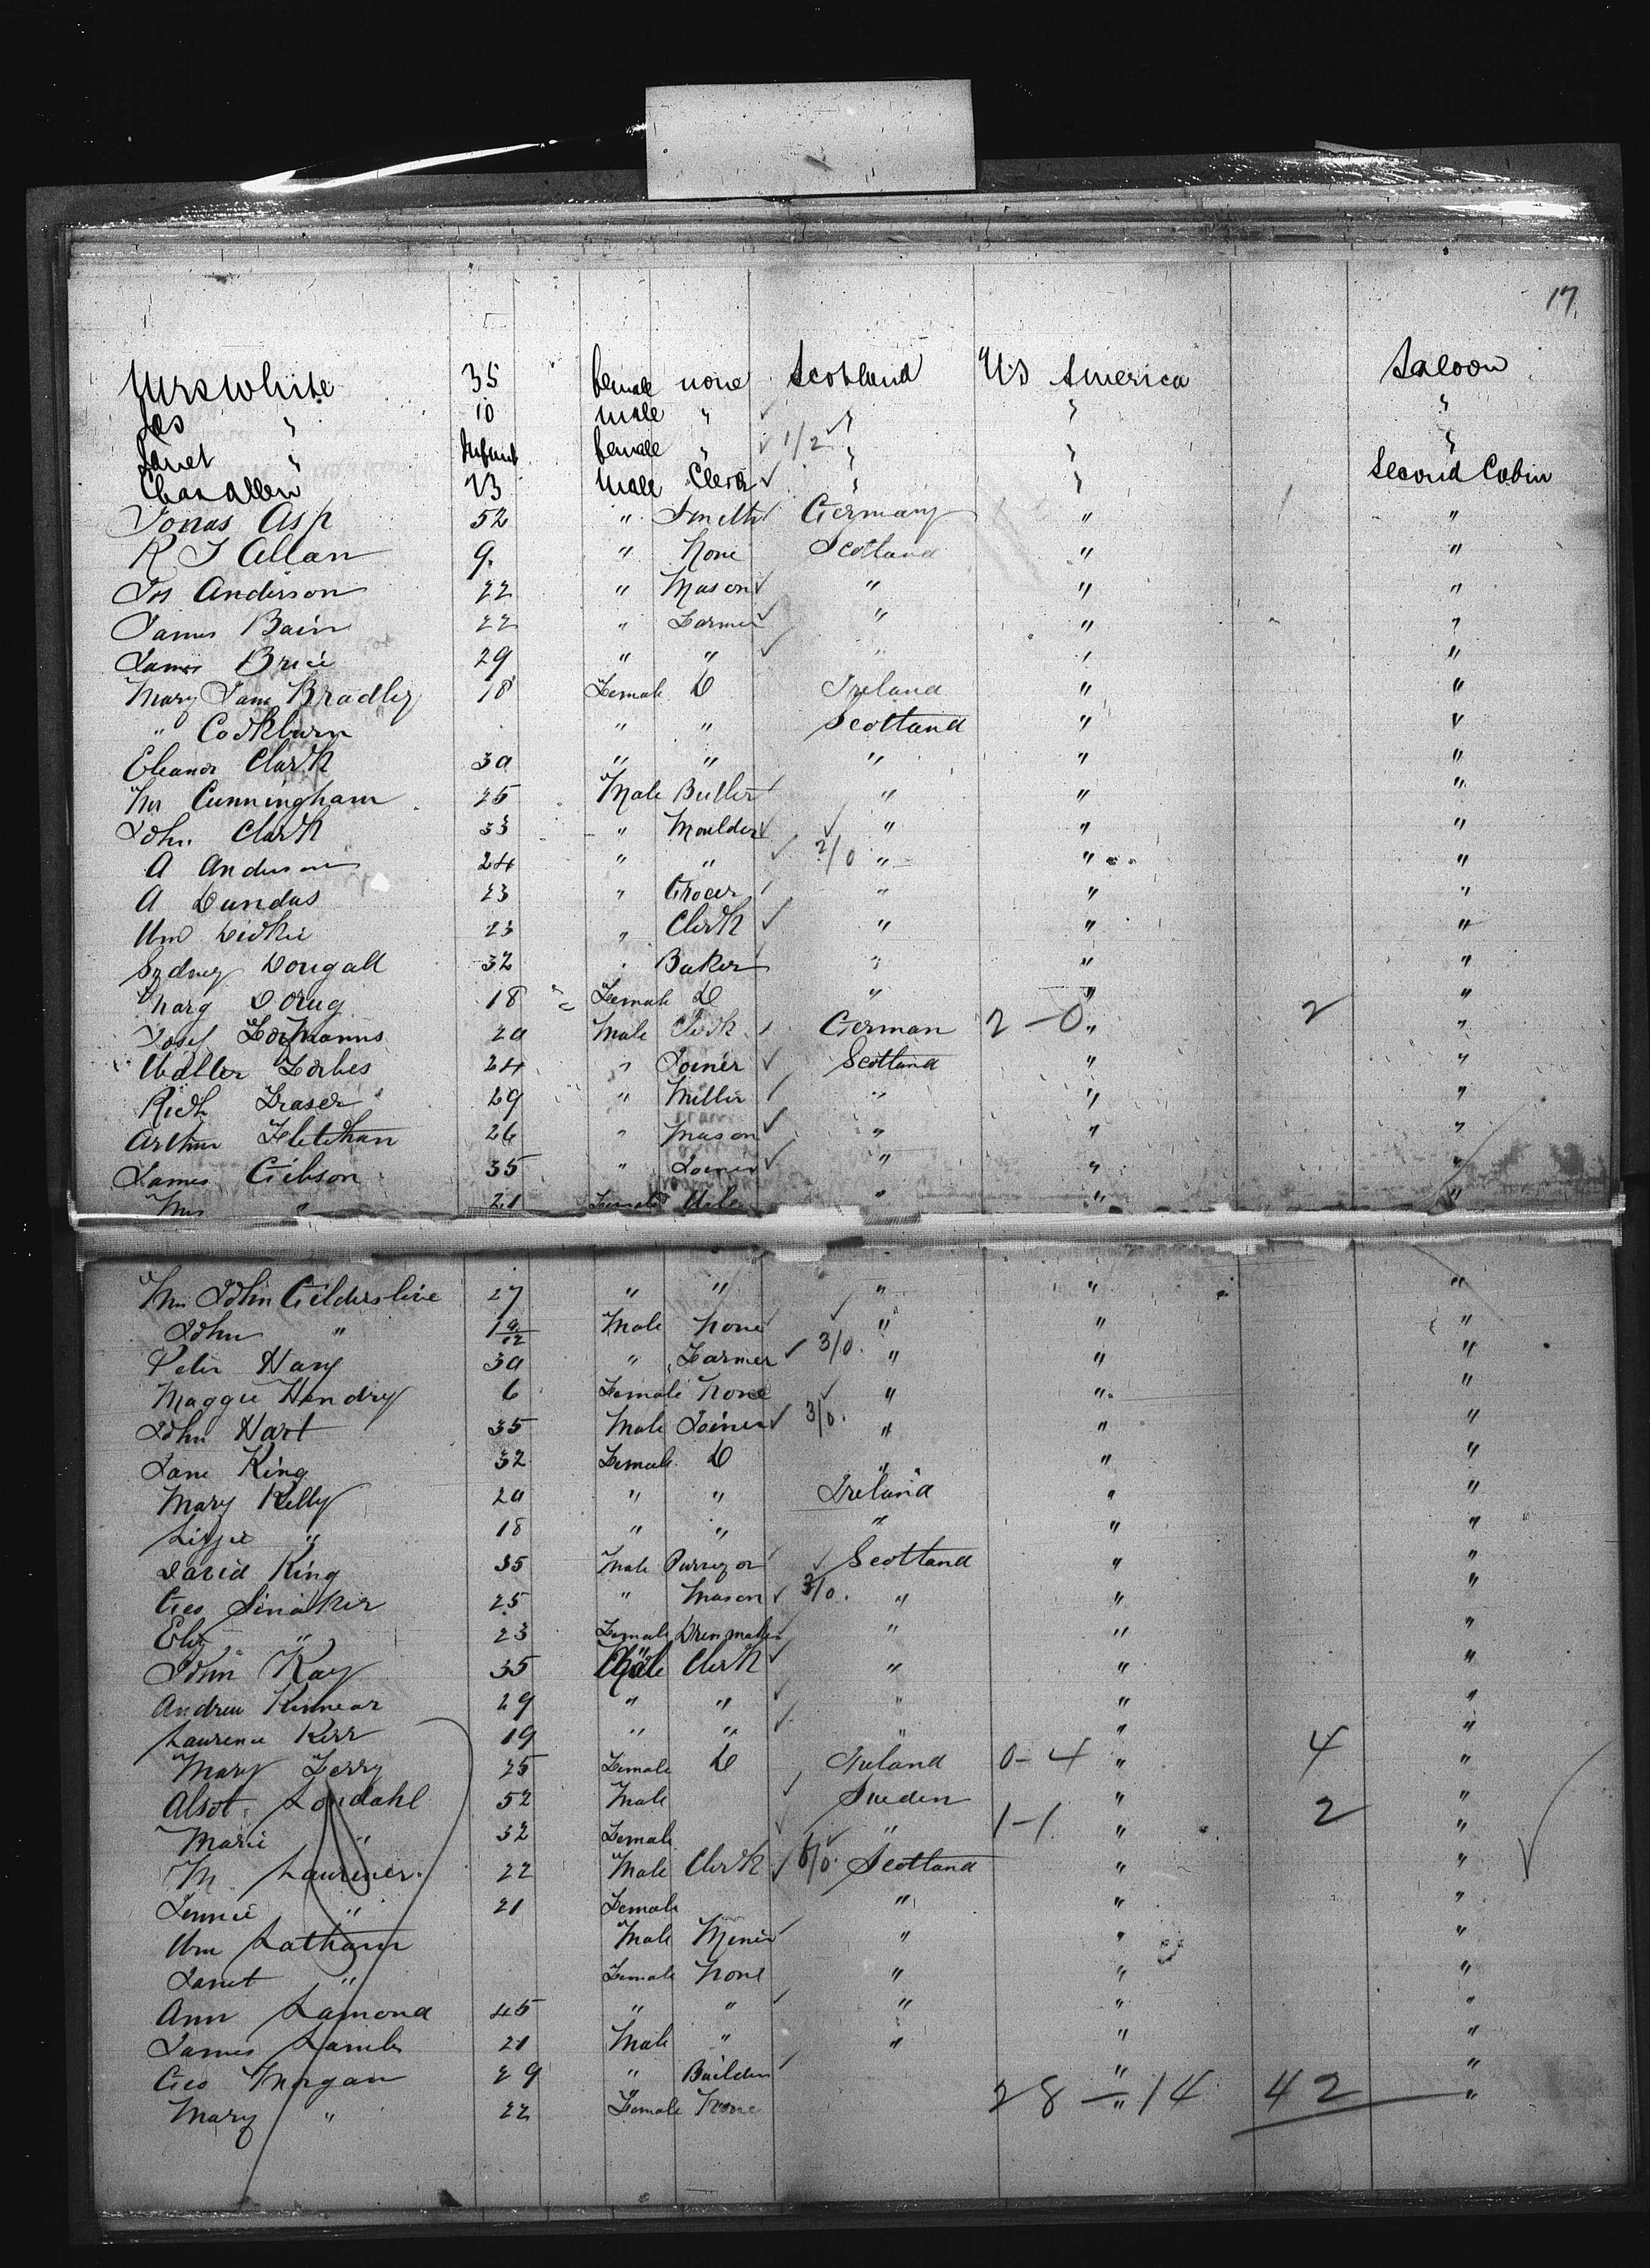 17
Mrs White 35 female none Scotland US America Saloon
Jas " 10 male " " " "
Janet " Infant female " 1/2 " " "
Chas Allen 23 Male Clerk " " Second Cabin
Jonas Asp 52 " Smith Germany " "
R J Allan 9 " None Scotland " "
Jos Anderson 22 " Mason " " "
James Bain 22 " Farmer " " "
James Brice 29 " " " " "
Mary Jane Bradley 18 Female D Ireland " "
" Cockburn " " Scotland " "
Eleanor Clark 30 " " " " "
Wm Cunningham 25 Male Butler " " "
John Clark 33 " Moulder " " "
A Anderson 24 " " 2/0 " " "
A Dundas 23 " Grocer " " "
Wm Dickie 23 " Clerk " " "
Sydney Dougall 32 " Baker " " "
Marg Doug 18 Female D " " "
Josef 20 Male German 2-0 " 2 "
Walter Forbes 24 " Joiner Scotland " "
Rich Fraser 29 " Miller " " "
Arthur 26 " Mason " " "
James Gibson 35 " Joiner " " "
Mrs " 21 Female " " "
Mrs John Gildersleive 27 " " " " "
John " Male None " " "
Peter Hay 30 " Farmer 3/0 " " "
Maggie Hendry 6 Female None " " "
John Hart 35 Male Joiner 3/0 " " "
Jane King 32 Female D " " "
Mary Kelly 20 " " Ireland " "
Lizzie " 18 " " " " "
David King 35 Male Scotland " "
Geo 25 " Mason 3/0 " " "
Eliz " 23 Female Dressmaker " " "
John Kay 35 Male Clerk " " "
Andrew Kinnear 29 " " " " "
Laurence Kerr 19 " " " " "
Mary Ferry 25 Female D Ireland 0-4 " 4 "
Londahl 52 Male Sweden " "
Marie " 32 Female " 1-1 " 2 "
M 22 Male Clerk 6/0 Scotland " "
Jennie " 21 Female " " "
Wm Latham Male Miner " " "
Janet " Female None " " "
Ann Lamond 45 " " " " "
James Lamb 21 Male " " " "
Geo Morgan 29 " Builder " "
Mary " 22 Female None 28 - 14 " 42 "